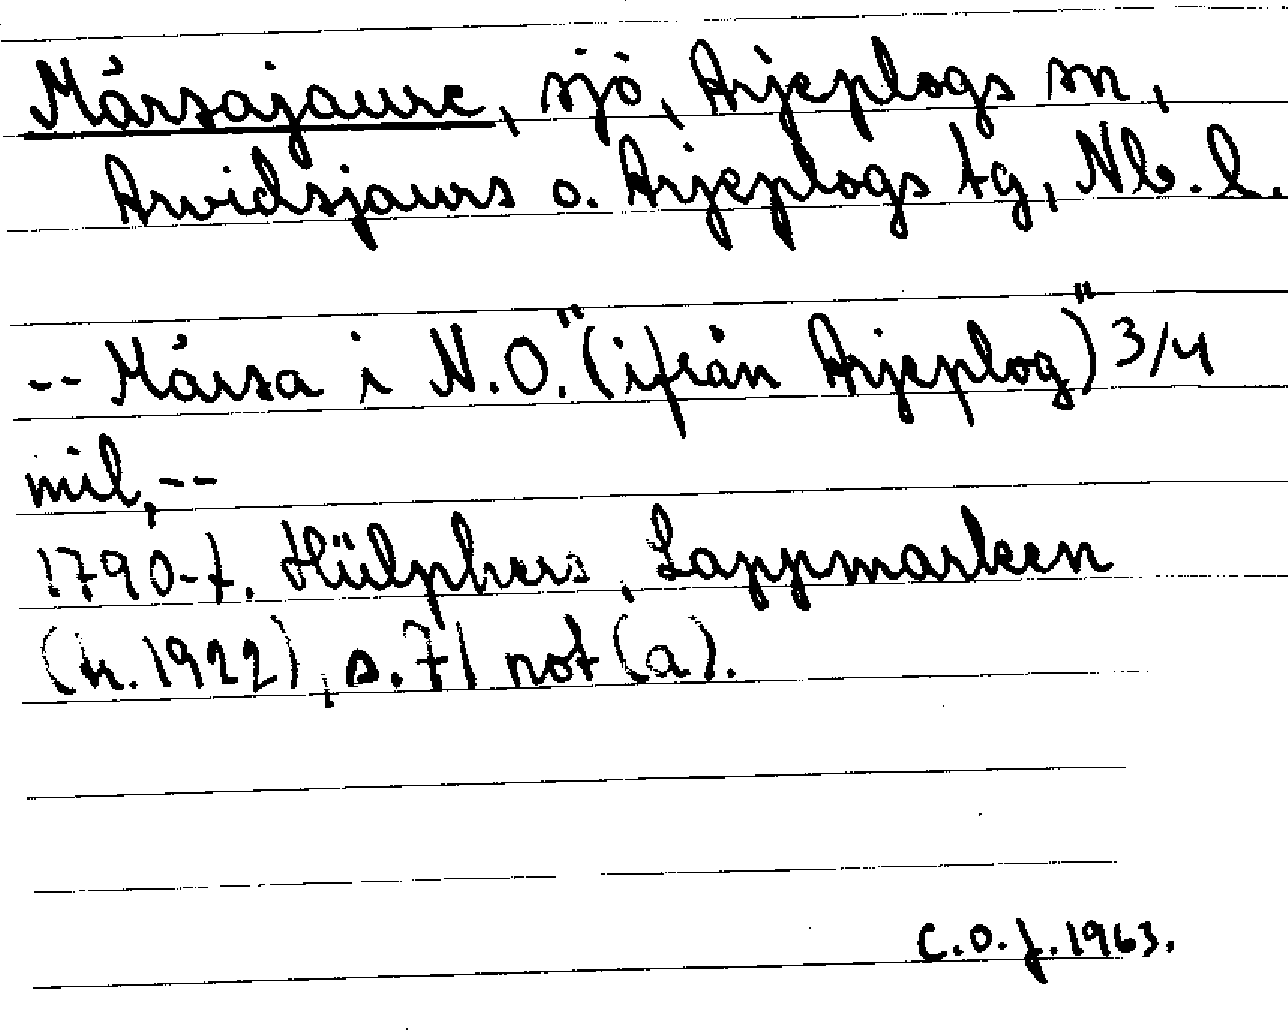 Mårsajaure, sjö, Arjeplogs sn,
Arvidsjaurs o. Arjeplogs tg, Nb. l.
-- Mårsa i N.O." (ifrån Arjeplog)" 3/4
mil, --
1790-t. Hülphers, Lappmarken
(tr. 1922), s. 71 not (a).
C.O.J. 1963.